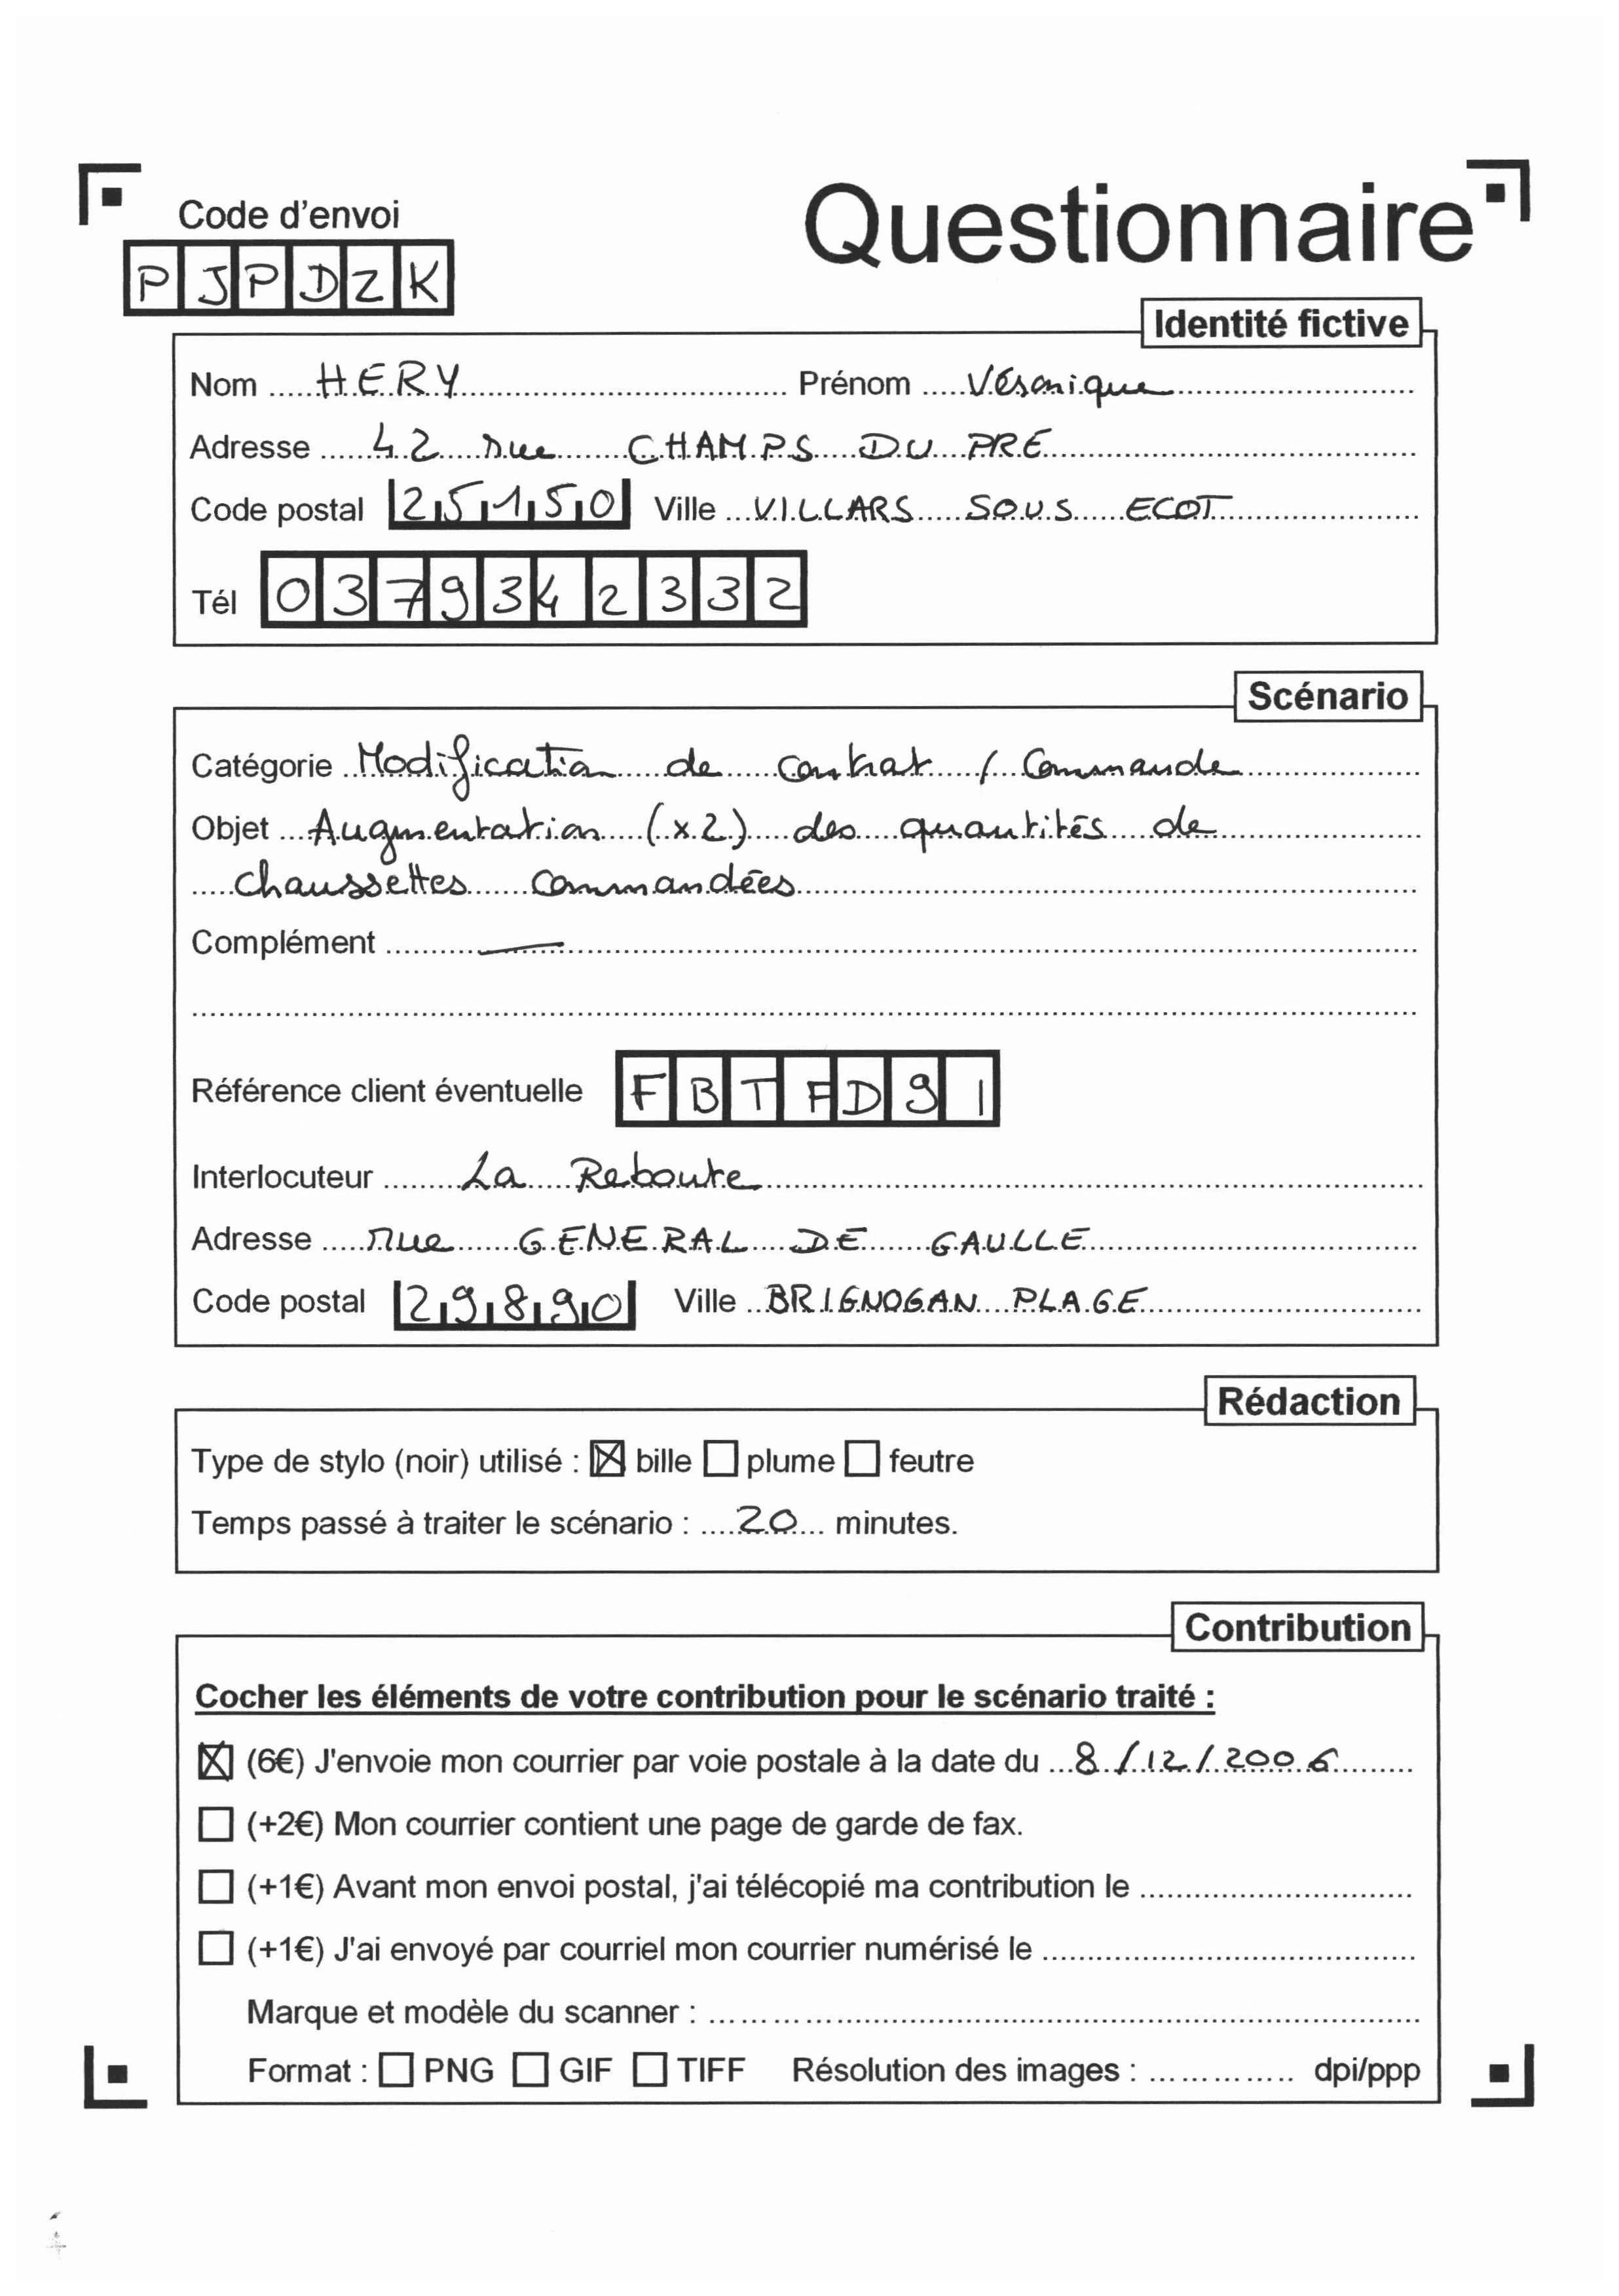 Code d'envoi
Questionnaire
PJPDZK
Identité fictive
Nom HERY Prénom Véronique
Adresse 42 rue CHAMPS DU PRE
Code postal 25150 Ville VILLARS SOUS ECOT
Tél 0379342332
Scénario
Catégorie Modification de contrat / Commande
Objet Augmentation (x2) des quantités de
chaussettes commandées
Complément —
Référence client éventuelle FBTFD91
Interlocuteur La Reboute
Adresse rue GENERAL DE GAULLE
Code postal 29890 Ville BRIGNOGAN PLAGE
Rédaction
Type de stylo (noir) utilisé : ☒ bille ☐ plume ☐ feutre
Temps passé à traiter le scénario : 20 minutes.
Contribution
Cocher les éléments de votre contribution pour le scénario traité :
☒ (6€) J'envoie mon courrier par voie postale à la date du 8/12/2006
☐ (+2€) Mon courrier contient une page de garde de fax.
☐ (+1€) Avant mon envoi postal, j'ai télécopié ma contribution le
☐ (+1€) J'ai envoyé par courriel mon courrier numérisé le
Marque et modèle du scanner :
Format : ☐ PNG ☐ GIF ☐ TIFF Résolution des images : dpi/ppp